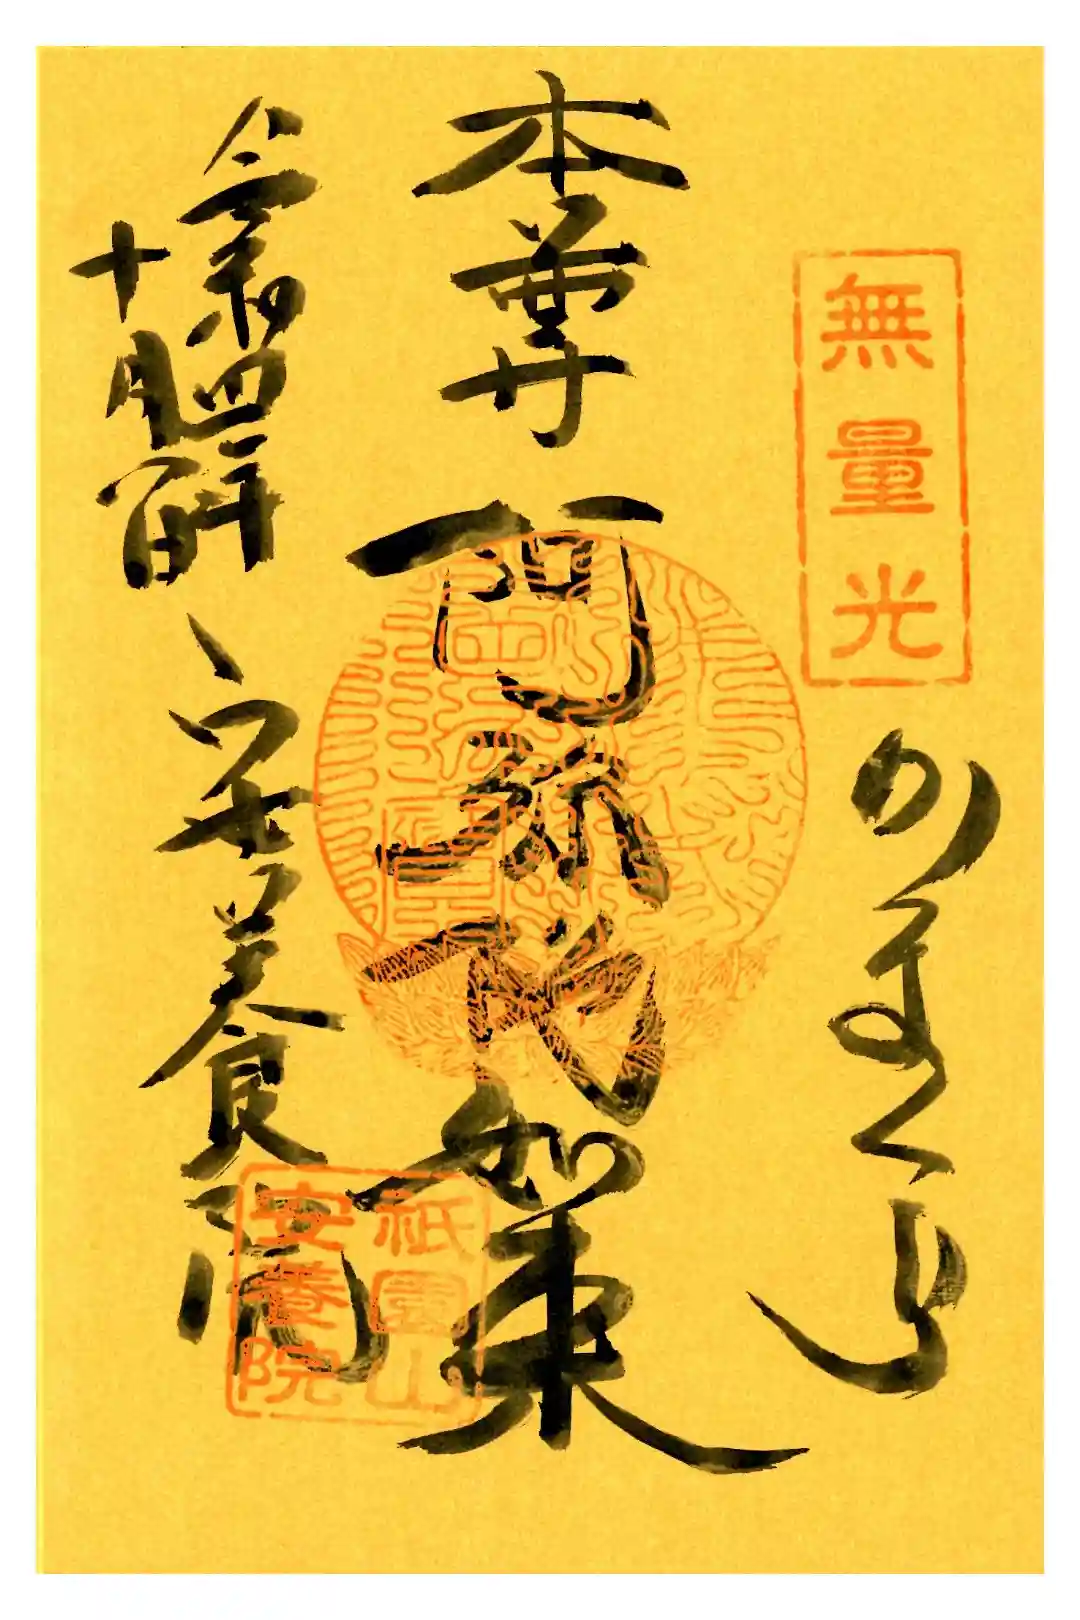 無量光
かまくら
本尊
阿弥陀如来
令和四年
十月一日
安養院
祇園山
安養院